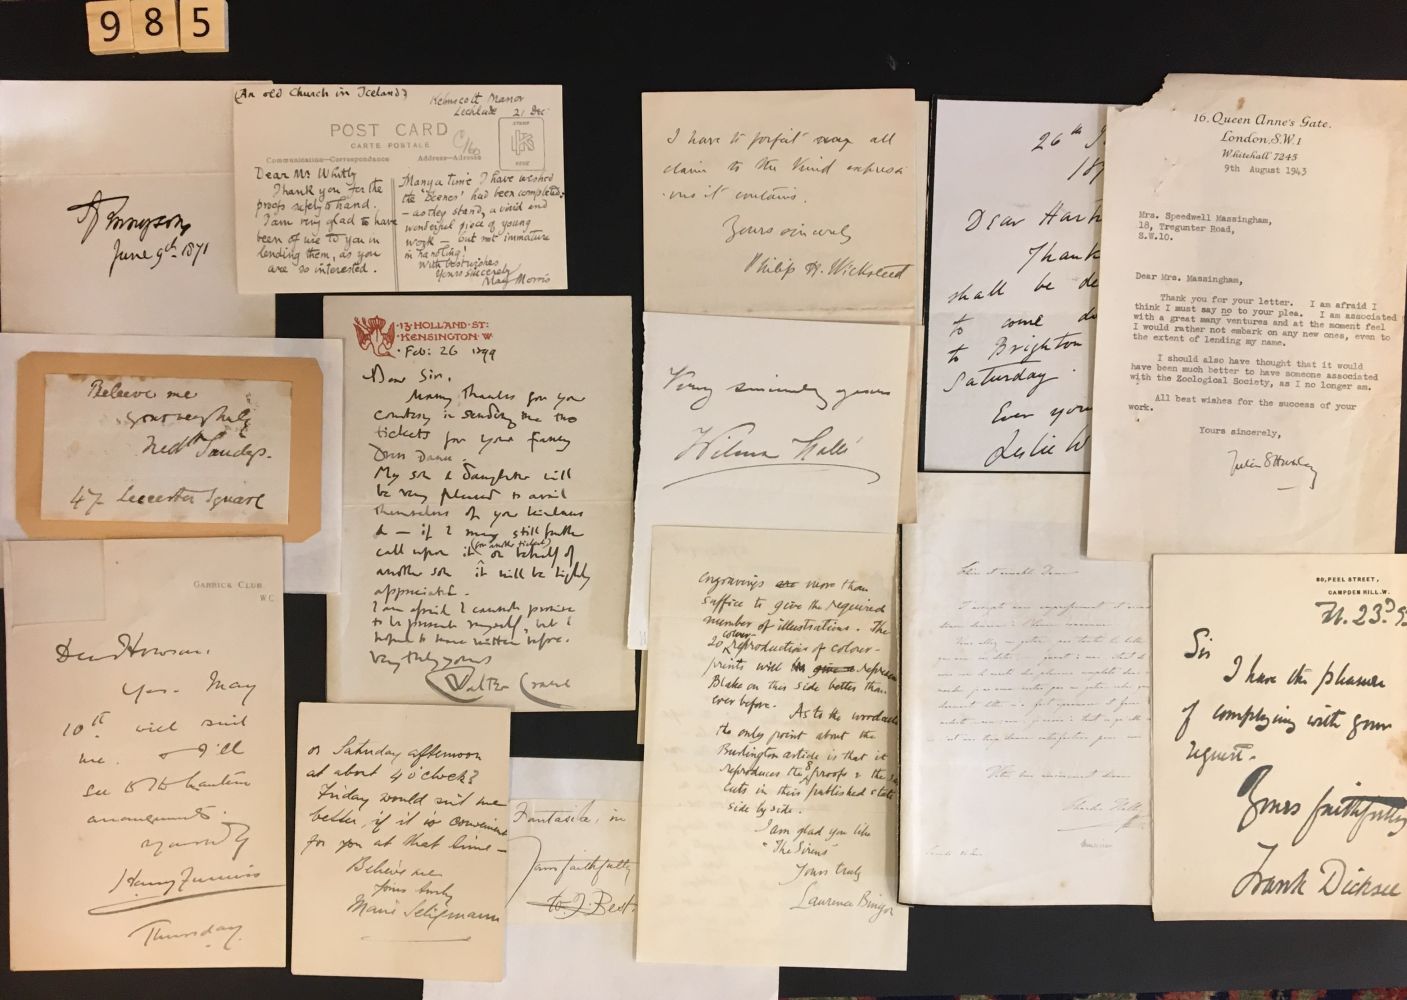 985
A Tennyson
June 9th 1871
(An old Church in Iceland)
Kelmscott Manor
Lechlade 21 Dec:
POST CARD
CARTE POSTALE
Communication—Correspondence
Address—Adresse
STAMP
HERE
C/60
Dear Mr Whitly
Thank you for the
proofs safely to hand.
I am very glad to have
been of use to you in
lending them, as you
are so interested.
Many a time I have wished
the 'Scenes' had been completed
— as they stand, a vivid and
wonderful piece of young
work — but not immature
in handling!
With best wishes
Yours Sincerely
May Morris
Believe me
yours very truly
Fredk Sandys.
47 Leicester Square
·13·HOLLAND·ST:
·KENSINGTON·W·
· Feb: 26 1899
Dear Sir,
Many thanks for your
courtesy in sending me two
tickets for your Fancy
Dress Dance.
My son & daughter will
be very pleased to avail
themselves of your kindness
& — if I may still further
call upon it (for another ticket) on behalf of
another son it will be highly
appreciated.
I am afraid I cannot promise
to be present myself, but I
hope to have written before.
Very truly yours
Walter Crane
GARRICK CLUB
W.C.
Dear Howson,
Yes. May
10th will suit
me. & I'll
see to the lantern
arrangements.
Yours truly
Harry Furniss
Thursday.
or Saturday afternoon
at about 4 o'clock?
Friday would suit me
better, if it is convenient
for you at that time —
Believe me
Yours truly
Marie Seligmann
Fantasie, in
I am faithfully
W. T. Best
I have to forfeit all
claim to the kind express-
ions it contains.
Yours sincerely
Philip H. Wicksteed
Very sincerely yours
Wilma Hallé
engravings are more than
suffice to give the required
number of illustrations. The
20 colour reproductions of colour-
prints will represent
Blake on this side better than
ever before. As to the woodcuts
the only point about the
Burlington article is that it
reproduces the 8 proofs & the
cuts in their published state
side by side.
I am glad you like
"The Sirens"
Yours truly
Laurence Binyon
26th
Dear Hart
Thank
shall be de
to come do
to Brighton
Saturday.
Ever your
Leslie W
16, Queen Anne's Gate.
London, S.W.1
Whitehall 7245
9th August 1943
Mrs. Speedwell Massingham,
18, Tregunter Road,
S.W.10.
Dear Mrs. Massingham,
Thank you for your letter. I am afraid I
think I must say no to your plea. I am associated
with a great many ventures and at the moment feel
I would rather not embark on any new ones, even to
the extent of lending my name.
I should also have thought that it would
have been much better to have someone associated
with the Zoological Society, as I no longer am.
All best wishes for the success of your
work.
Yours sincerely,
Julian S Huxley
80, PEEL STREET,
CAMPDEN HILL. W.
Sir
I have the pleasure
of complying with your
request.
Yours faithfully
Frank Dicksee